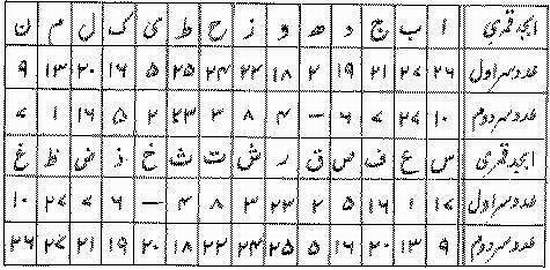 ابجد قمری ا ب ج د ه و ز ح ط ی ک ل م ن
عدد سر اول ۲۶ ۲۷ ۲۱ ۱۹ ۲ ۱۸ ۲۲ ۲۴ ۲۵ ۵ ۱۶ ۲۰ ۱۳ ۹
عدد سر دوم ۱۰ ۲۷ ۷ ۶ — ۴ ۸ ۳ ۲۳ ۲ ۵ ۱۶ ۱ ۷
ابجد قمری س ع ف ص ق ر ش ت ث خ ذ ض ظ غ
عدد سر اول ۱۷ ۱ ۱۶ ۵ ۲ ۲۳ ۳ ۸ ۴ — ۶ ۷ ۲۷ ۱۰
عدد سر دوم ۹ ۱۳ ۲۰ ۱۶ ۵ ۲۵ ۲۴ ۲۲ ۱۸ ۲۰ ۱۹ ۲۱ ۲۷ ۲۶